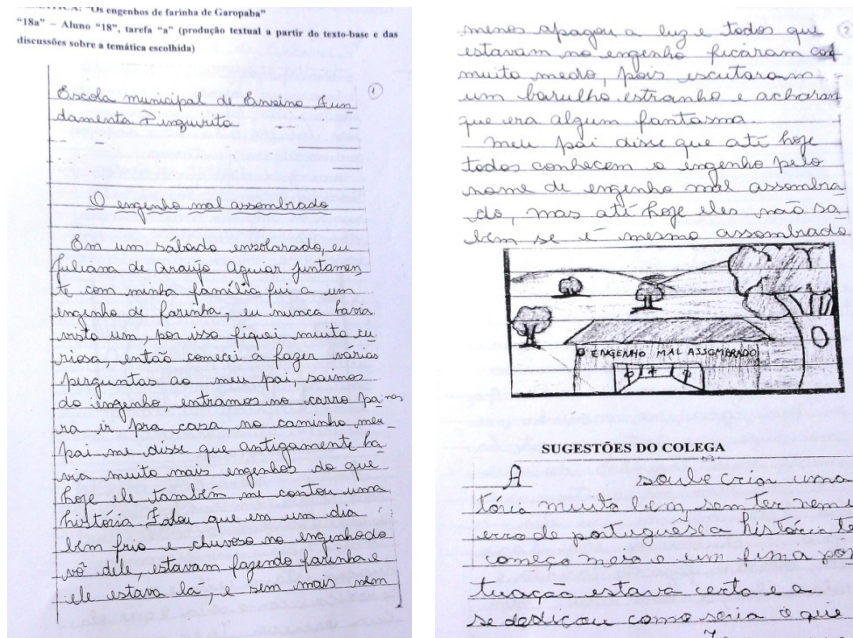 "Os engenhos de farinha de Garopaba"
"18a" – Aluno "18", tarefa "a" (produção textual a partir do texto-base e das
discussões sobre a temática escolhida)
1
Escola municipal de Ensino Fun
damenta Pinguirito
O engenho mal assombrado
Em um sábado ensolarado, eu
Juliana de Araujo Aguiar juntamen
te com minha família fui a um
engenho de farinha, eu nunca havia
visto um, por isso fiquei muito cu
riosa, então comecei a fazer várias
perguntas ao meu pai, saimos
do engenho, entramos no carro pa nos
ra ir pra casa, no caminho meu
pai me disse que antigamente ha
via muito mais engenhos do que
hoje ele também me contou uma
história Falou que em um dia
bem frio e chuvoso no engenho do
vô dele, estavam fazendo farinha e
ele estava lá, e sem mais nem
2
menos apagou a luz e todos que
estavam no engenho ficaram com
muito medo, pois escutaram
um barulho estranho e acharam
que era algum fantasma.
Meu pai disse que até hoje
todos conhecem o engenho pelo
nome de engenho mal assombra
do, mas até hoje eles não sa
bem se é mesmo assombrado
O ENGENHO MAL ASSOMBRADO
SUGESTÕES DO COLEGA
A soube criar uma
tória muito bem, sem ter nem
erro de português a história te
começo meio e um fim a pon
tuação estava certa e a
se dedicou como seria o que